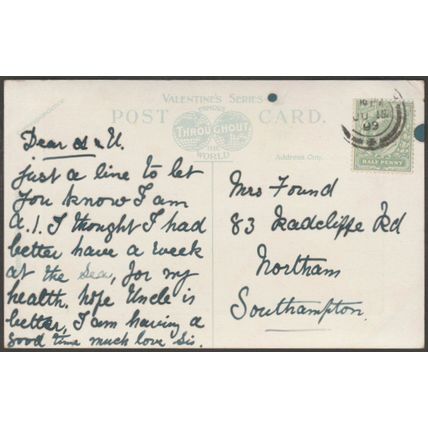 VALENTINE'S SERIES
FAMOUS
POST CARD.
THROUGHOUT
THE
WORLD
Correspondence.
Address Only.
JU 15
09
HALF PENNY
Dear A & U.
just a line to let
you know I am
A.1. I thought I had
better have a week
at the Sea, for my
health. hope Uncle is
better, I am having a
good time much love Sis.
Mrs Found
83 Radcliffe Rd
Northam
Southampton.